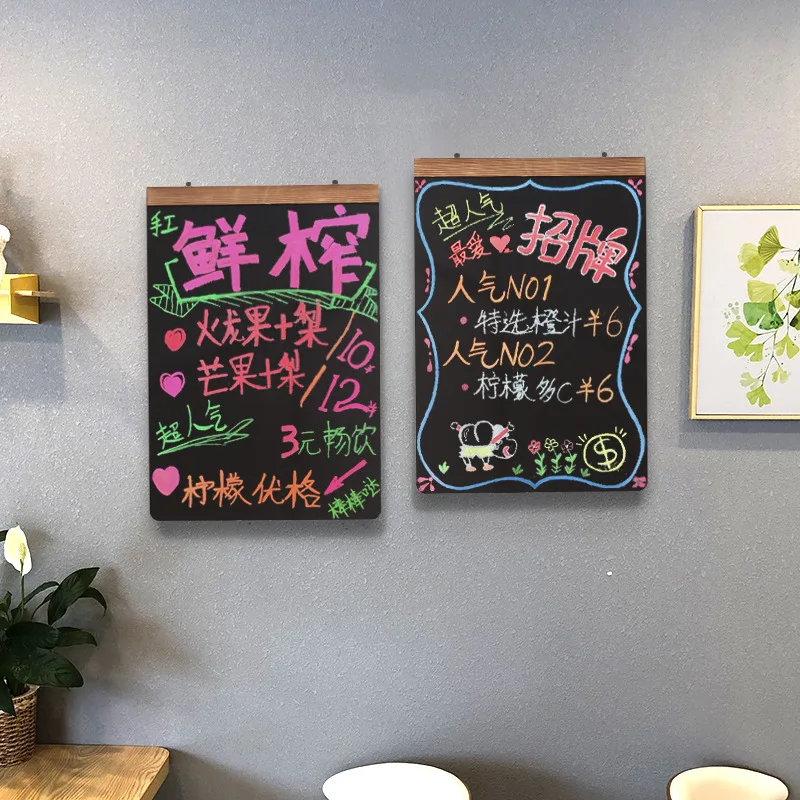 手工
鲜榨
火龙果+梨/10元
芒果+梨/12元
超人气
3元畅饮
柠檬优格
棒棒哒
超人气
最爱
招牌
人气NO1
特选橙汁¥6
人气NO2
柠檬多C¥6
$